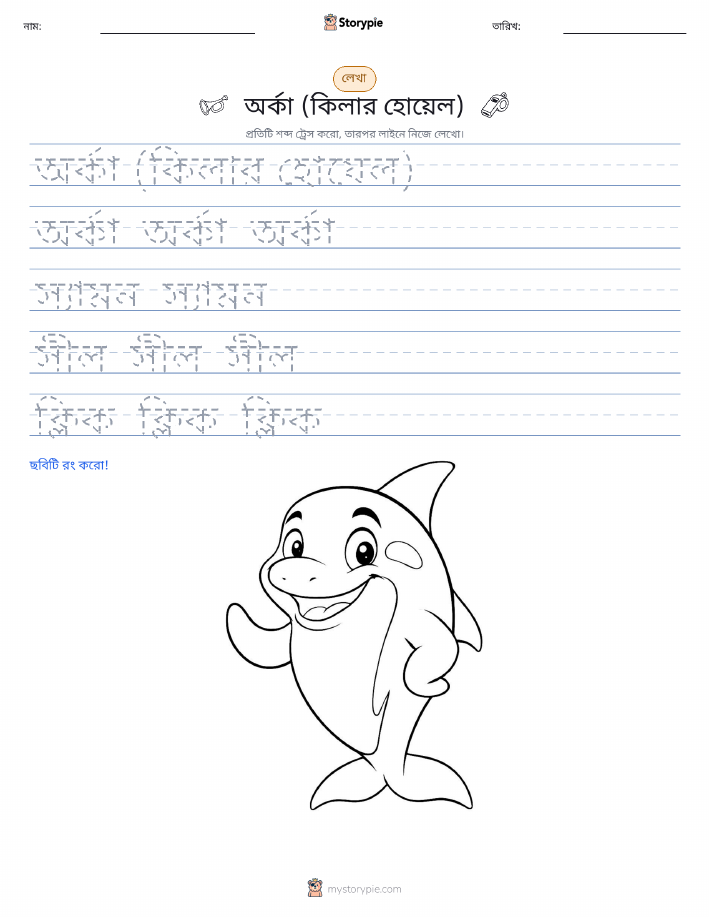 নাম:
Storypie
তারিখ:
লেখা
অর্কা (কিলার হোয়েল)
প্রতিটি শব্দ ট্রেস করো, তারপর লাইনে নিজে লেখো।
অর্কা (কিলার হোয়েল)
অর্কা অর্কা অর্কা
স্যামন স্যামন
সীল সীল সীল
ক্লিক ক্লিক ক্লিক
ছবিটি রং করো!
mystorypie.com